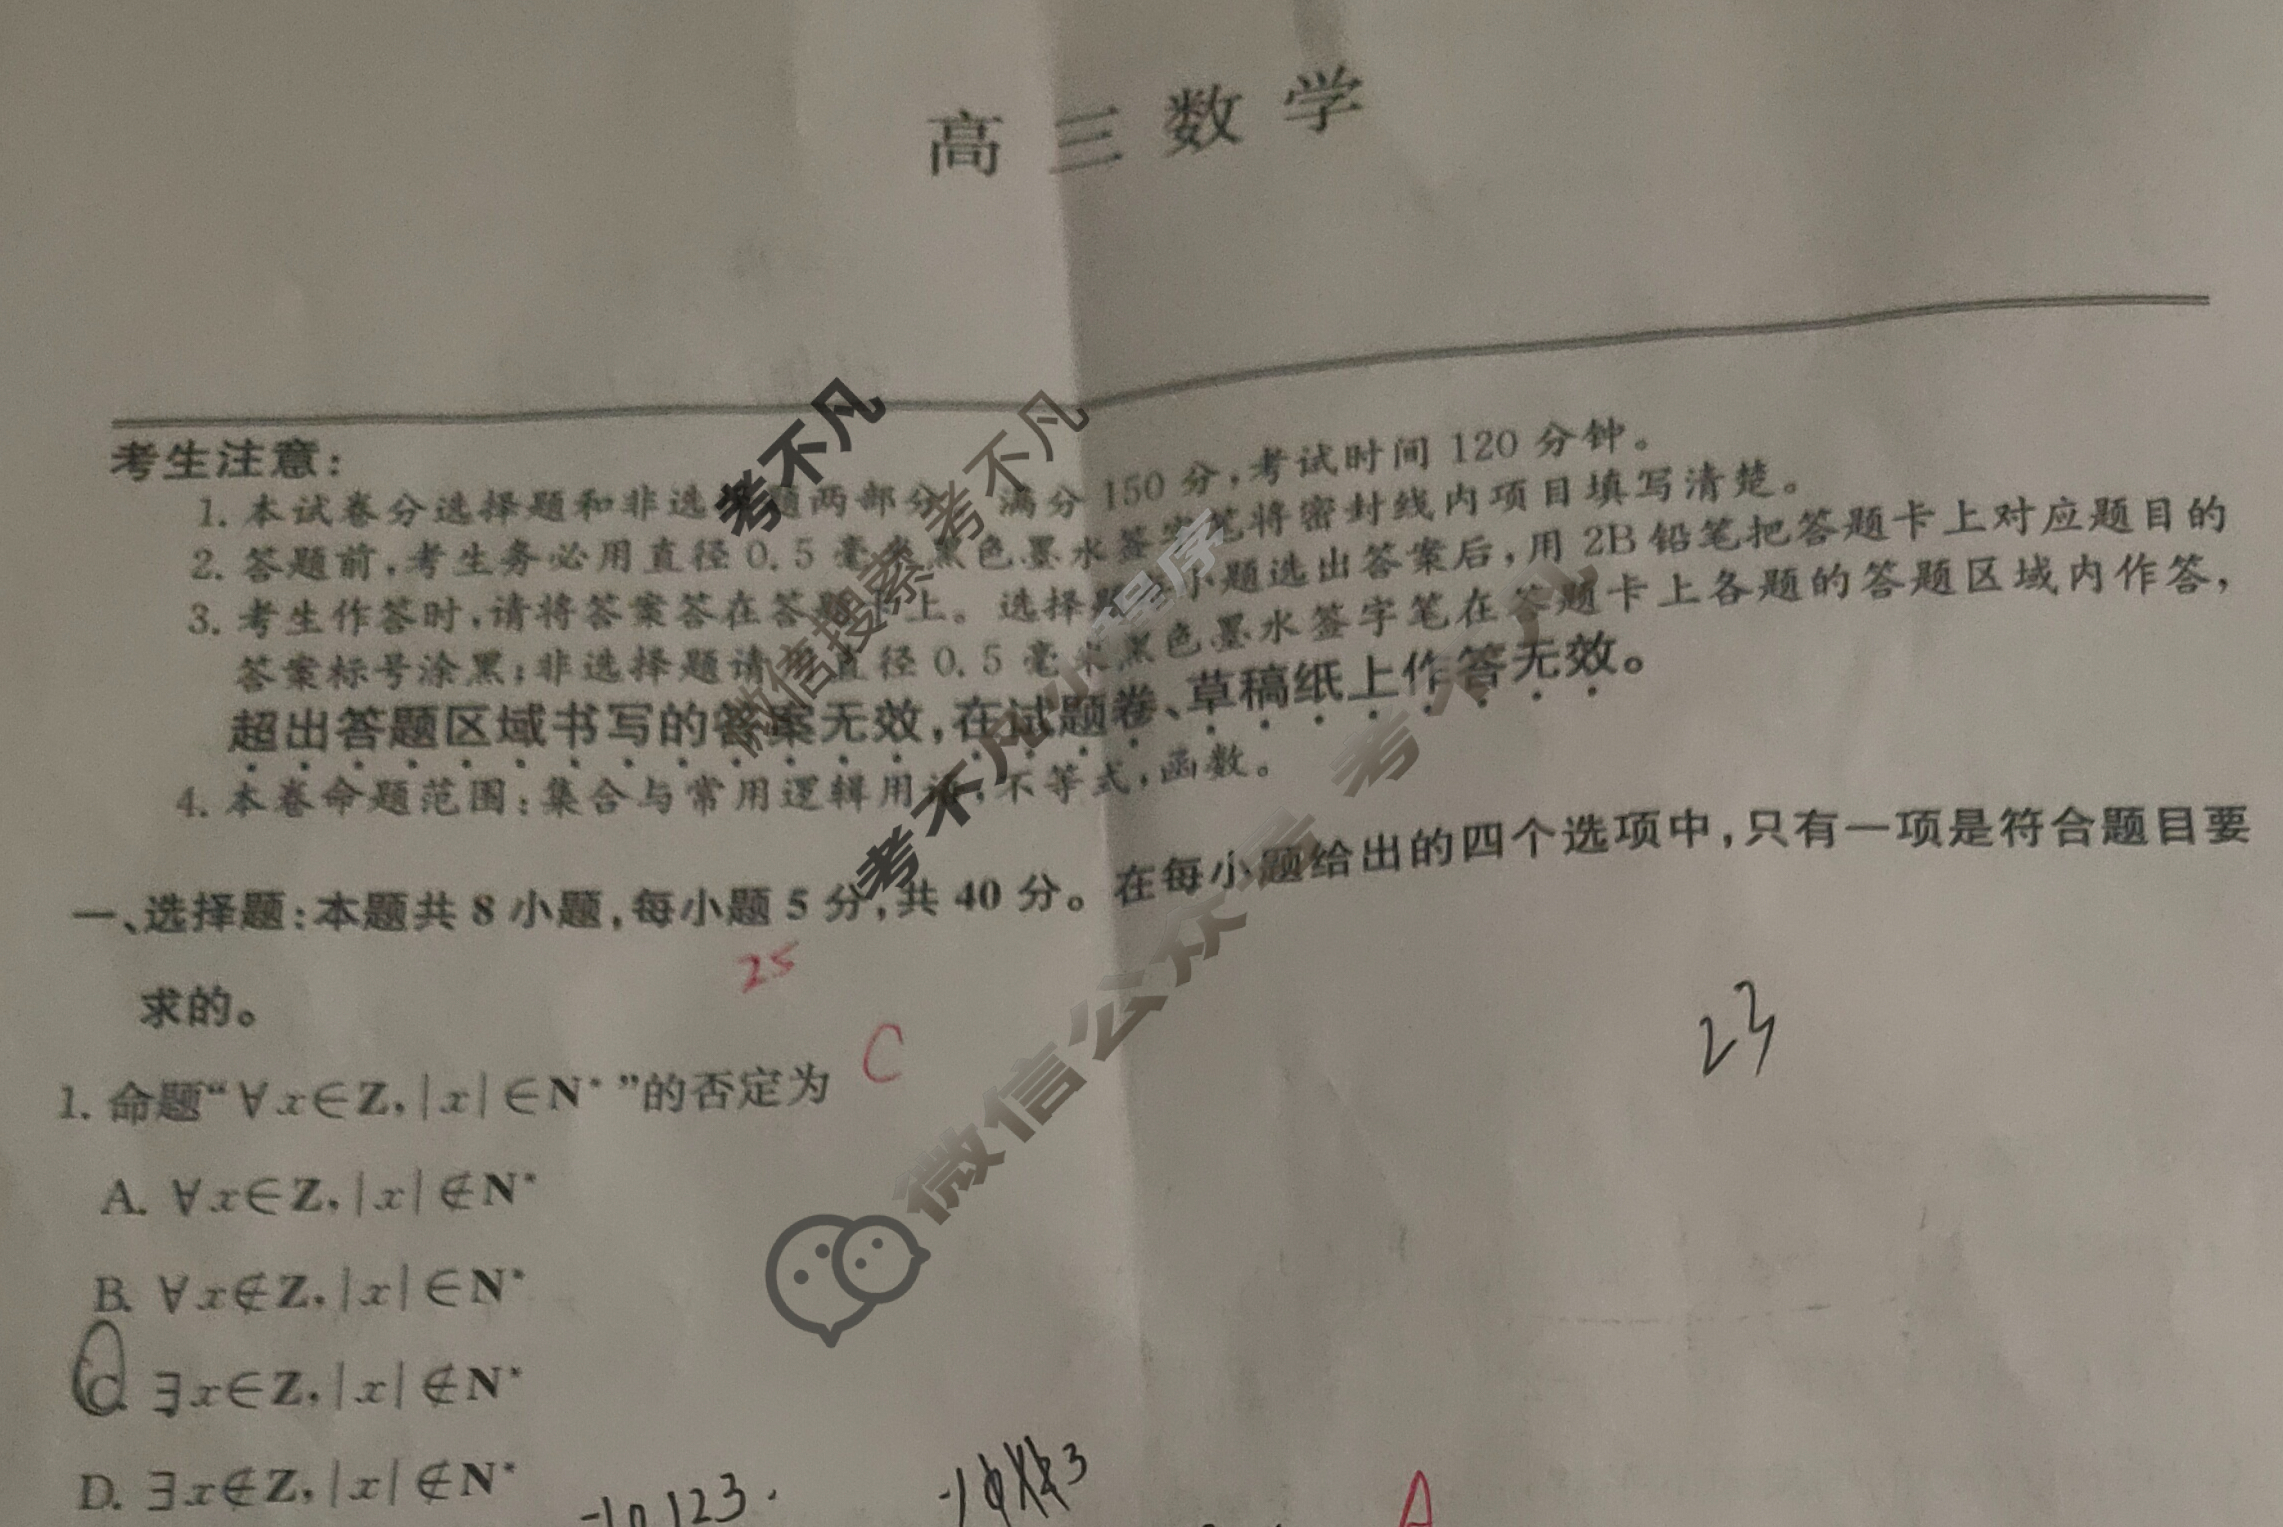 高三数学
考生注意:
1. 本试卷分选择题和非选择题两部分。满分150分,考试时间120分钟。
2. 答题前,考生务必用直径0.5毫米黑色墨水签字笔将密封线内项目填写清楚。
3. 考生作答时,请将答案答在答题卡上。选择题每小题选出答案后,用2B铅笔把答题卡上对应题目的
答案标号涂黑;非选择题请用直径0.5毫米黑色墨水签字笔在答题卡上各题的答题区域内作答,
超出答题区域书写的答案无效,在试题卷、草稿纸上作答无效。
4. 本卷命题范围:集合与常用逻辑用语,不等式,函数。
一、选择题:本题共8小题,每小题5分,共40分。在每小题给出的四个选项中,只有一项是符合题目要
求的。
25
23
1. 命题“∀x∈Z,|x|∈N*”的否定为 C
A. ∀x∈Z,|x|∉N*
B. ∀x∉Z,|x|∈N*
C. ∃x∈Z,|x|∉N*
D. ∃x∉Z,|x|∉N*
-10123.
A
考不凡
微信搜索 考不凡
考不凡小程序
微信公众号 考不凡